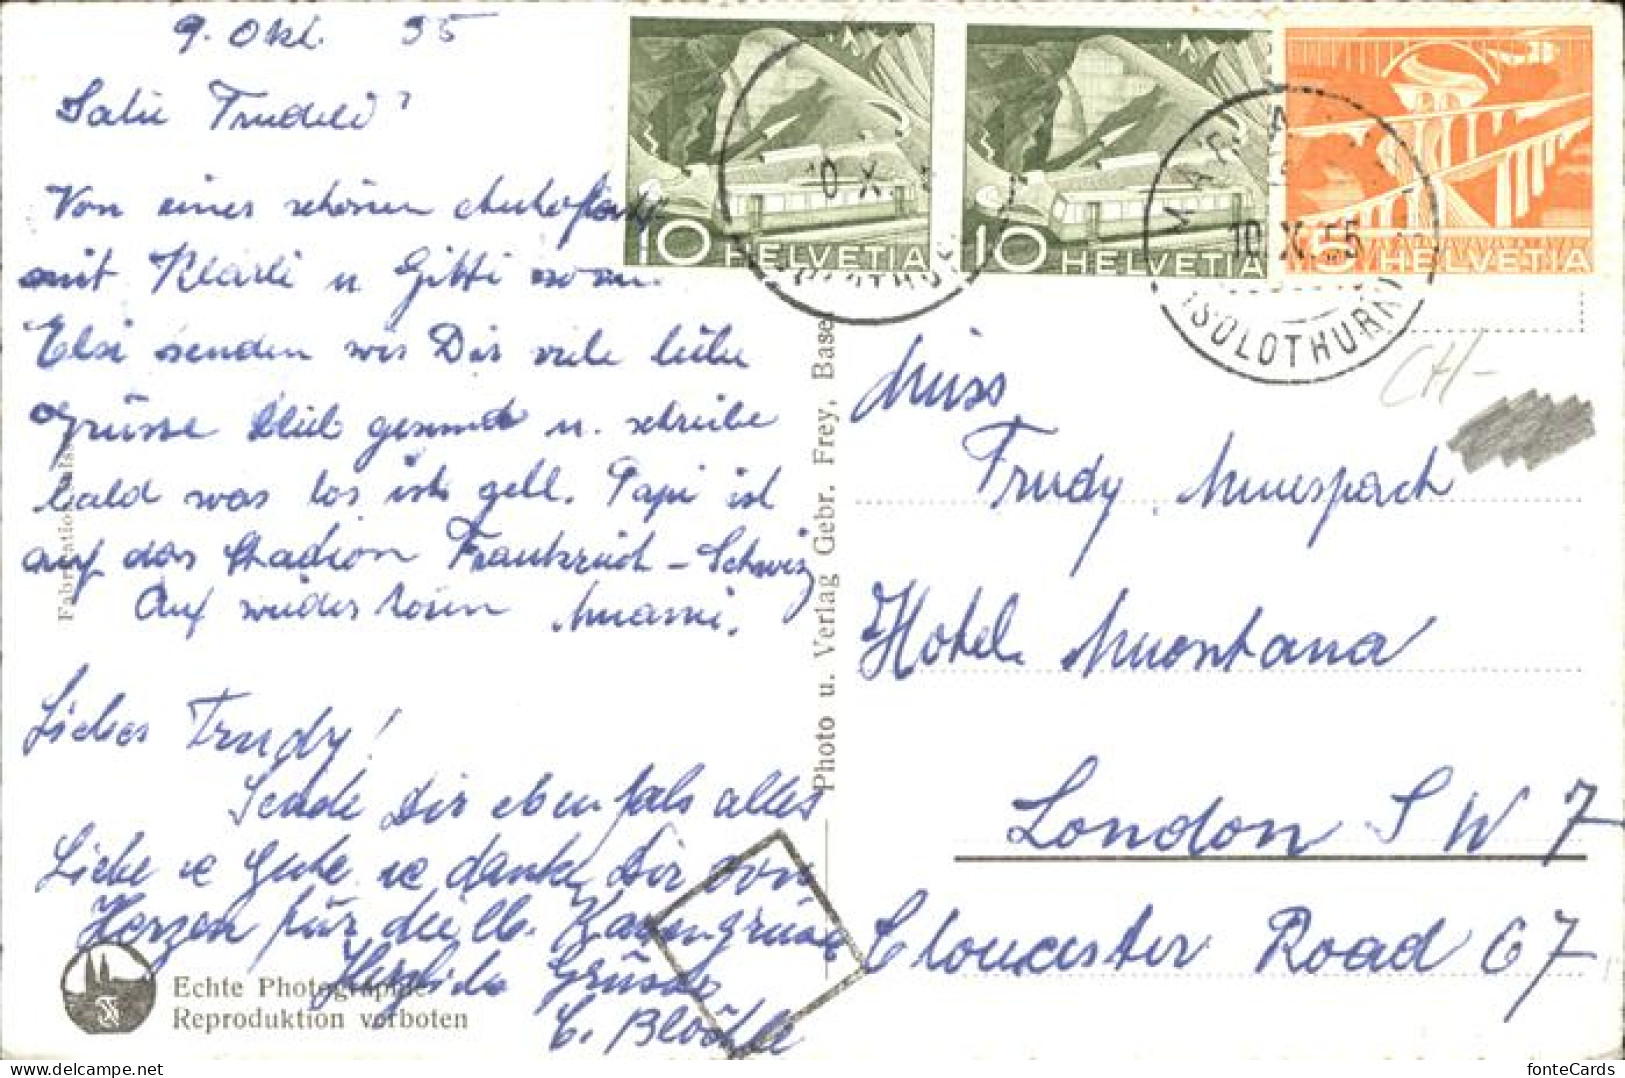 9. Okt. 55
Salü Trudeli
Von einer schönen Autofahrt
mit Klärli u Gitti
Elsi senden wir Dir viele liebe
Grüsse bleib gesund u. schreibe
bald was los ist gell. Papi ist
auf das Stadion Frankreich - Schweiz
Auf wieder hören Mami.
Liebes Trudy!
Sende Dir ebenfals alles
Liebe u Gute u danke Dir von
Herzen für die lb. Kartengrüsse
Herzliche Grüsse
Blöchle
Echte Photographie
Reproduktion verboten
Photo u. Verlag Gebr. Frey, Basel
10 HELVETIA
10 HELVETIA
5 HELVETIA
10 X
10.X.55
(SOLOTHURN)
CH-
Miss
Trudy Muespach
Hotel Montana
London S W 7
Gloucester Road 67
fonteCards